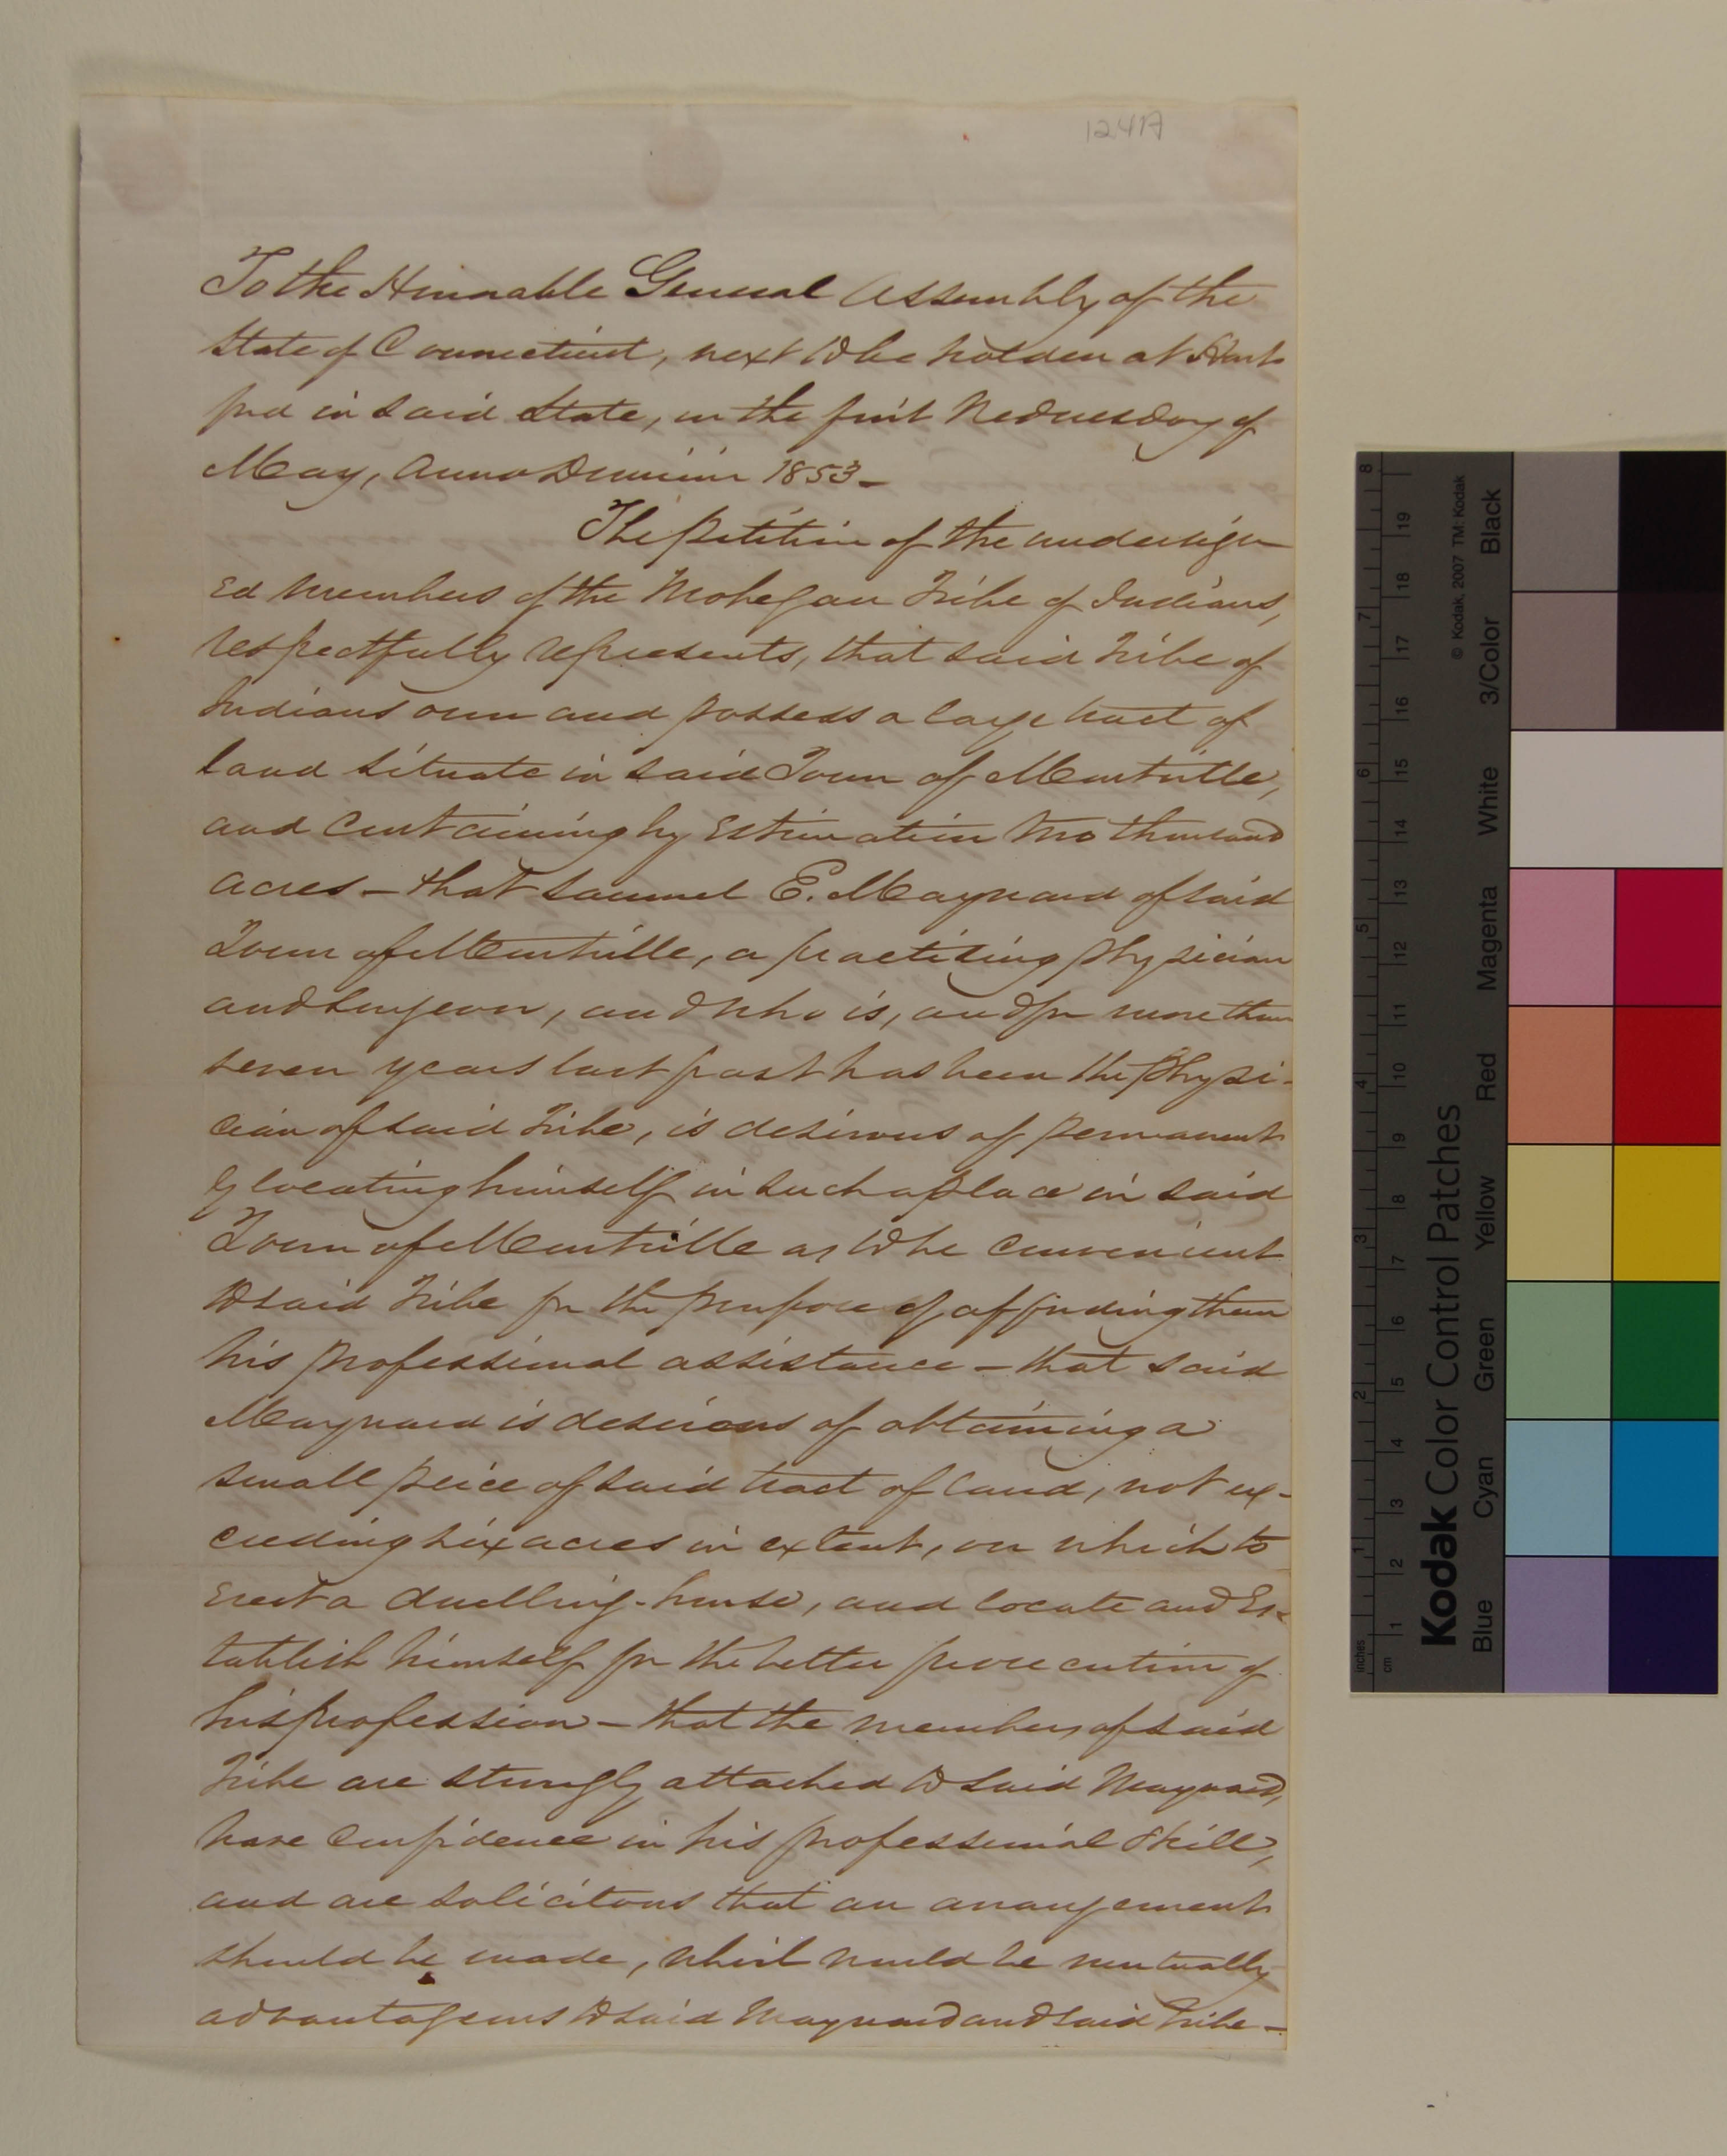 1241A
To the Honorable General Assembly of the
State of Connecticut, next to be holden at Hart
ford in said State, on the first Wednesday of
May, Anno Domini 1853 –
The petition of the undersign
ed members of the Mohegan Tribe of Indians,
respectfully represents, that said Tribe of
Indians own and possess a large tract of
land situate in said Town of Montville,
and containing by estimation two thousand
acres – that Samuel E. Maynard of said
Town of Montville, a practising physician
and surgeon, and who is, and for more than
seven years last past has been the Physi-
cian of said Tribe, is desirous of permanent
ly locating himself in such a place in said
Town of Montville as to be convenient
to said Tribe for the purpose of affording them
his professional assistance – that said
Maynard is desirous of obtaining a
small peice of said tract of land, not ex-
ceeding six acres in extent, on which to
erect a dwelling-house, and locate and es-
tablish himself for the better prosecution of
his profession – that the members of said
Tribe are strongly attached to said Maynard,
have confidence in his professional skill,
and are solicitous that an arrangement
should be made, which would be mutually
advantageous to said Maynard and said Tribe –
Kodak Color Control Patches
© Kodak, 2007 TM: Kodak
Blue Cyan Green Yellow Red Magenta White 3/Color Black
inches 1 2 3 4 5 6 7 8
cm 1 2 3 4 5 6 7 8 9 10 11 12 13 14 15 16 17 18 19